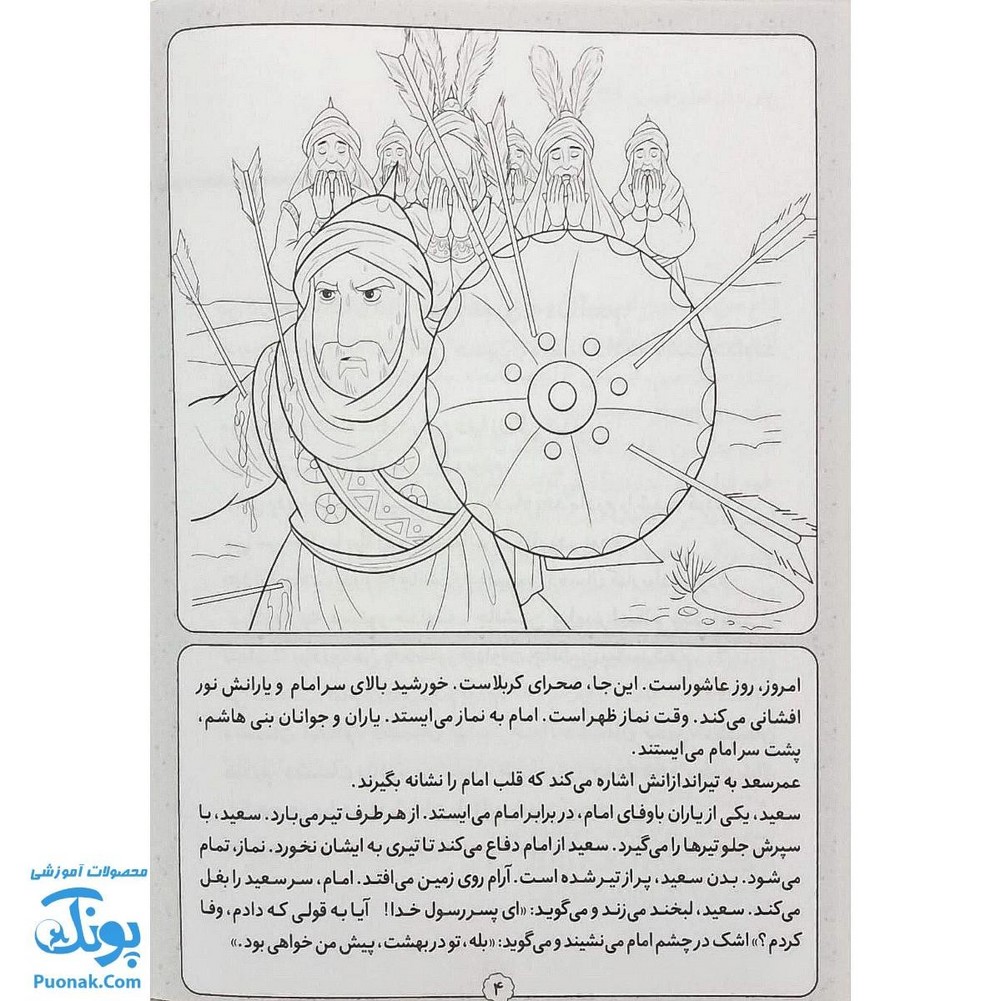 امروز، روز عاشوراست. این‌جا، صحرای کربلاست. خورشید بالای سر امام و یارانش نور
افشانی می‌کند. وقت نماز ظهر است. امام به نماز می‌ایستد. یاران و جوانان بنی هاشم،
پشت سر امام می‌ایستند.
عمرسعد به تیراندازانش اشاره می‌کند که قلب امام را نشانه بگیرند.
سعید، یکی از یاران باوفای امام، در برابر امام می‌ایستد. از هر طرف تیر می‌بارد. سعید، با
سپرش جلو تیرها را می‌گیرد. سعید از امام دفاع می‌کند تا تیری به ایشان نخورد. نماز، تمام
می‌شود. بدن سعید، پر از تیر شده است. آرام روی زمین می‌افتد. امام، سر سعید را بغل
می‌کند. سعید، لبخند می‌زند و می‌گوید: «ای پسر رسول خدا! آیا به قولی که دادم، وفا
کردم؟» اشک در چشم امام می‌نشیند و می‌گوید: «بله، تو در بهشت، پیش من خواهی بود.»
۴
محصولات آموزشی
پونک
Puonak.Com